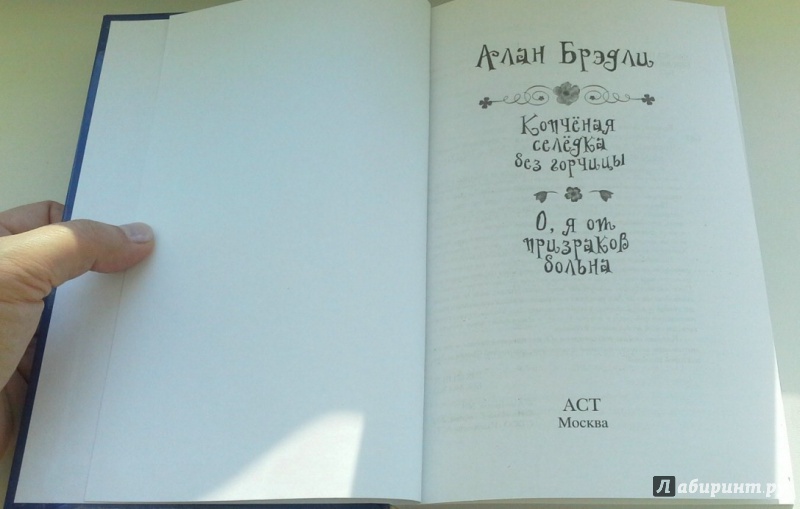 Алан Брэдли
Копчёная
селёдка
без горчицы
О, я от
призраков
больна
АСТ
Москва
Лабиринт.ру